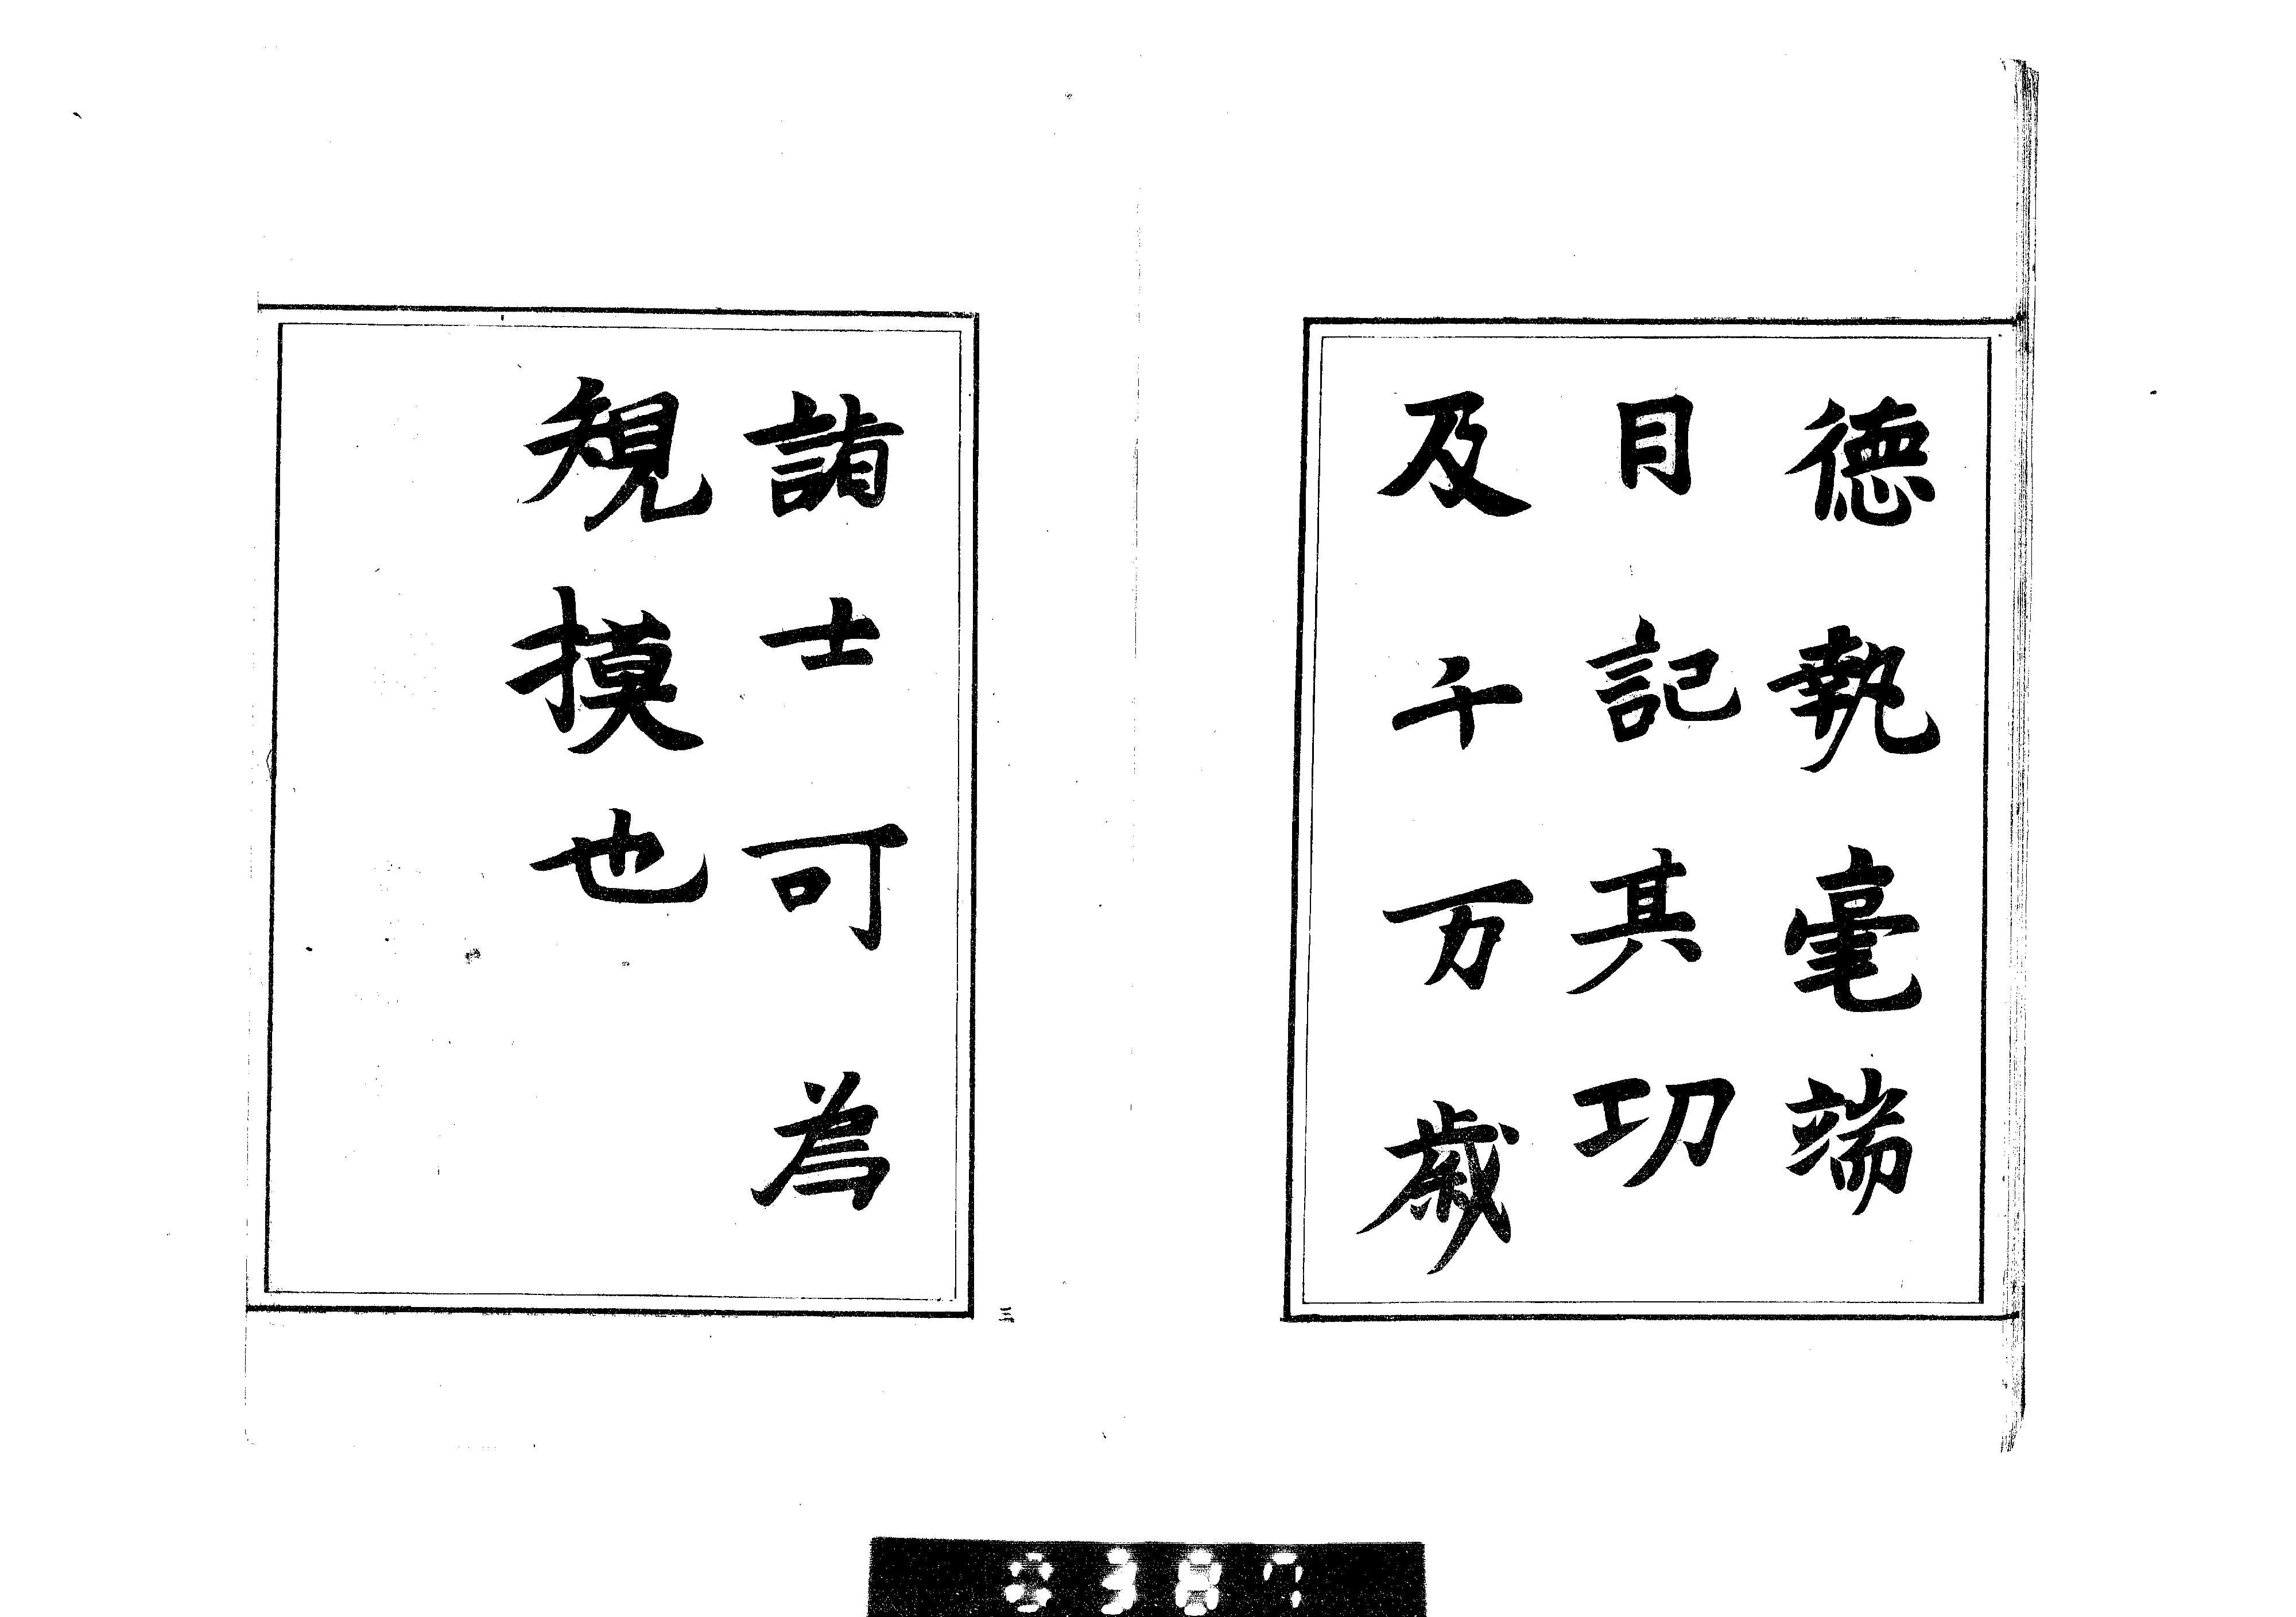 德執毫端
目記其功
及千万歳
諸士可為
規摸也
三
0387